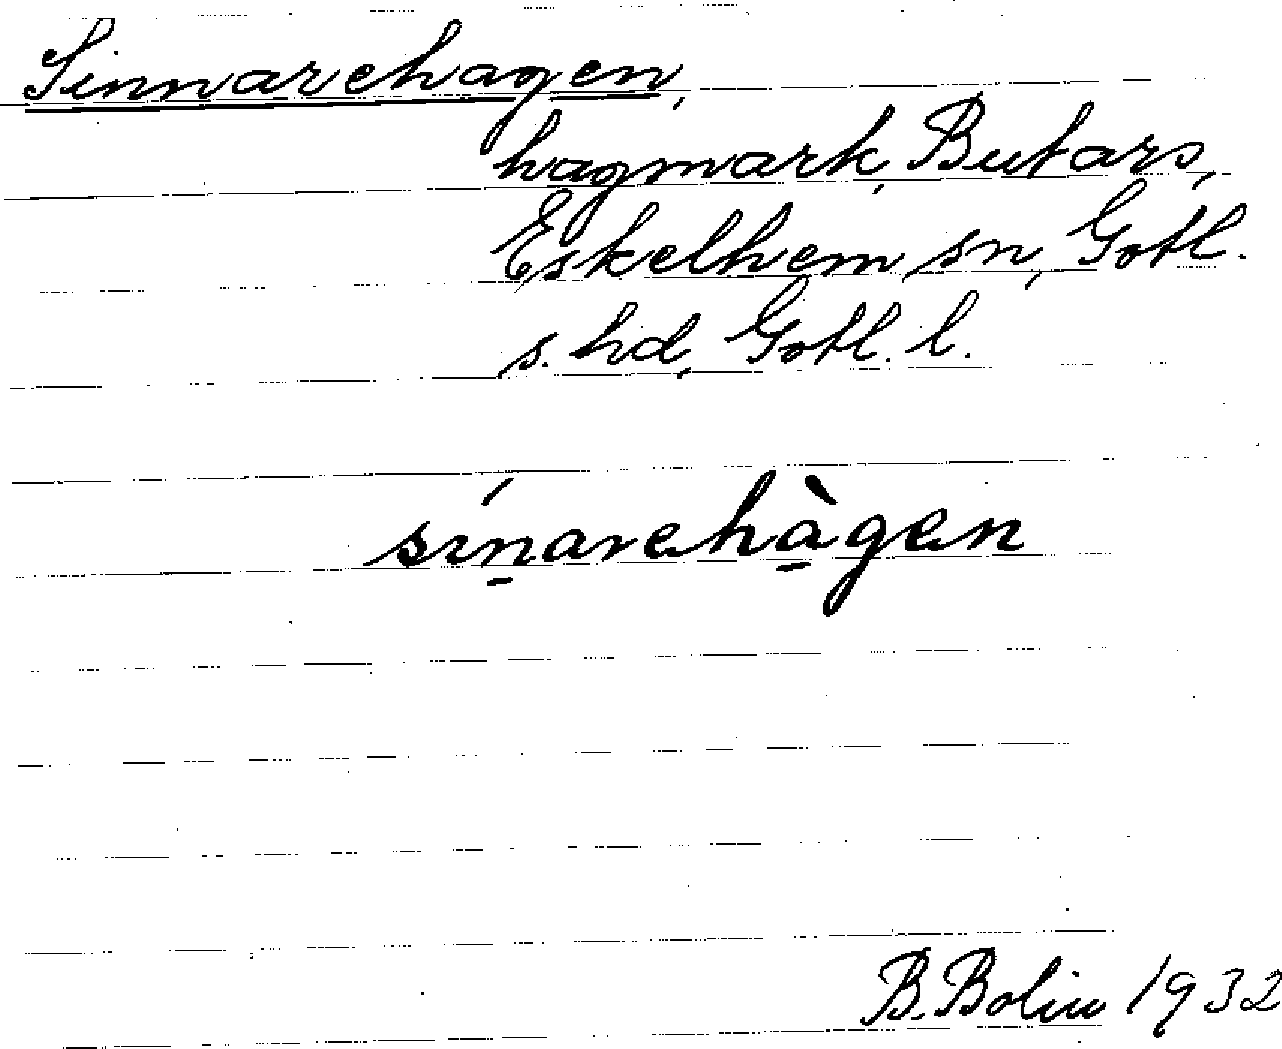 Sinnarehagen,
hagmark, Butars,
Eskelhem sn, Gotl.
s. hd, Gotl. l.
sı́n̠arehà̠gen
B. Bolin 1932